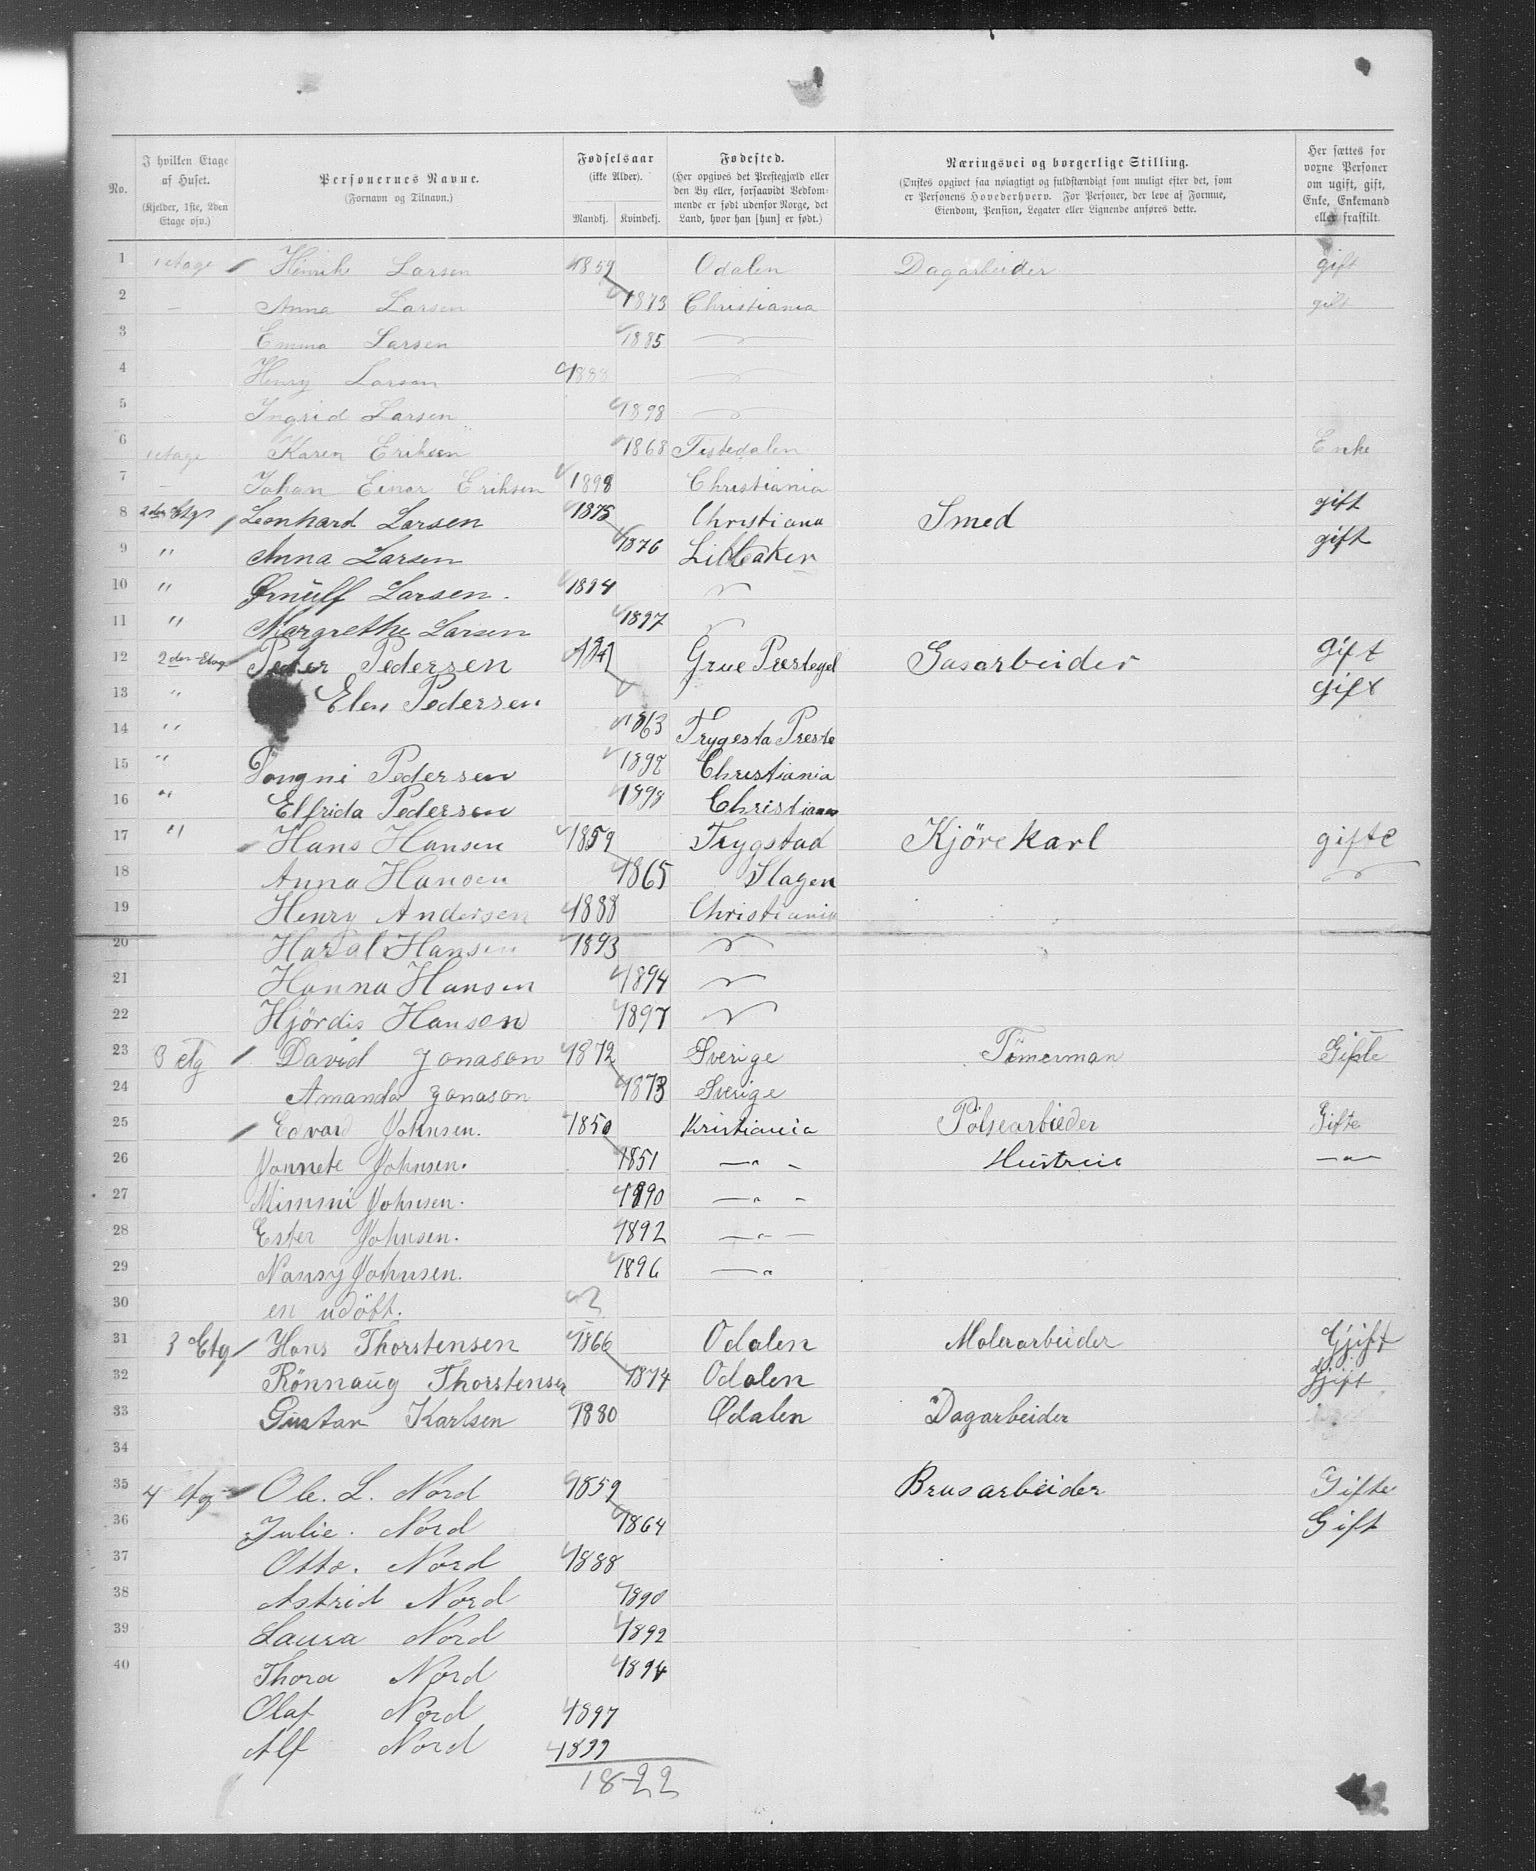 No.
I hvilken Etage af Huset. (Kjelder, 1ste, 2den Etage osv.)
Personernes Navne. (Fornavn og Tilnavn.)
Fødselsaar (ikke Alder). Mandkj. Kvindekj.
Fødested. (Her opgives det Prestegjæld eller den By eller, forsaavidt Vedkommende er født udenfor Norge, det Land, hvor han [hun] er født.)
Næringsvei og borgerlige Stilling. (Ønskes opgivet saa nøiagtigt og fuldstændigt som muligt efter det, som er Personens Hovederhverv. For Personer, der leve af Formue, Eiendom, Pension, Legater eller Lignende anføres dette.
Her sættes for voxne Personer om ugift, gift, Enke, Enkemand eller fraskilt.
1 1 etage Hinrik Larsen 1859 Odalen Dagarbeider gift
2 — Anna Larsen 1873 Christiania gift
3 Emma Larsen 1885
4 Henry Larsen 1888
5 Ingrid Larsen 1898
6 1 etage Karen Eriksen 1868 Tistedalen Enke
7 — Johan Einar Eriksen 1898 Christiania
8 2den Etg Leonhard Larsen 1875 Christiana Smed gift
9 " Anna Larsen 1876 Lilleaker gift
10 " Ørnulf Larsen. 1894
11 " Margrethe Larsen 1897
12 2den Etag Peder Pedersen Grue Præstegel Gasarbeider gift
13 " Elen Pedersen gift
14 " 1863 Trygesta Preste
15 " Pedersen 1892 Christiania
16 " Elfrida Pedersen 1898 Christiania
17 " Hans Hansen 1859 Trygstad Kjörekarl gifte
18 Anna Hansen 1865 Slagen
19 Henry Andersen 1888 Christiania
20 Harald Hansen 1893
21 Hanna Hansen 1894
22 Hjördis Hansen 1897
23 3 etg David Jonason 1872 Sverige Tömerman Gifte
24 Amanda Jonason 1873 Sverige
25 Edvard Johnsen. 1850 Kristiania Pölsearbieder Gifte
26 Jonnete Johnsen. 1851 — " - Hustrue — " —
27 Mimmi Johnsen. 1890 — " -
28 Ester Johnsen. 1892 — " —
29 Nansy Johnsen. 1896 — "
30 en udöbt. ?
31 3 Etg Hans Thorstensen 1866 Odalen Molerarbeider Gjift
32 Rönnaug Thorstensen 1874 Odalen Gjift
33 Gustav Karlsen 1880 Odalen Dagarbeider
34
35 4 etg Ole. L. Nord 1859 Brusarbeider Gifte
36 Julie. Nord 1864 Gift
37 Otto. Nord 1888
38 Astrid Nord 1890
39 Laura Nord 1892
40 Thora Nord 1894
Olaf Nord 1897
Alf Nord 1899
18-22